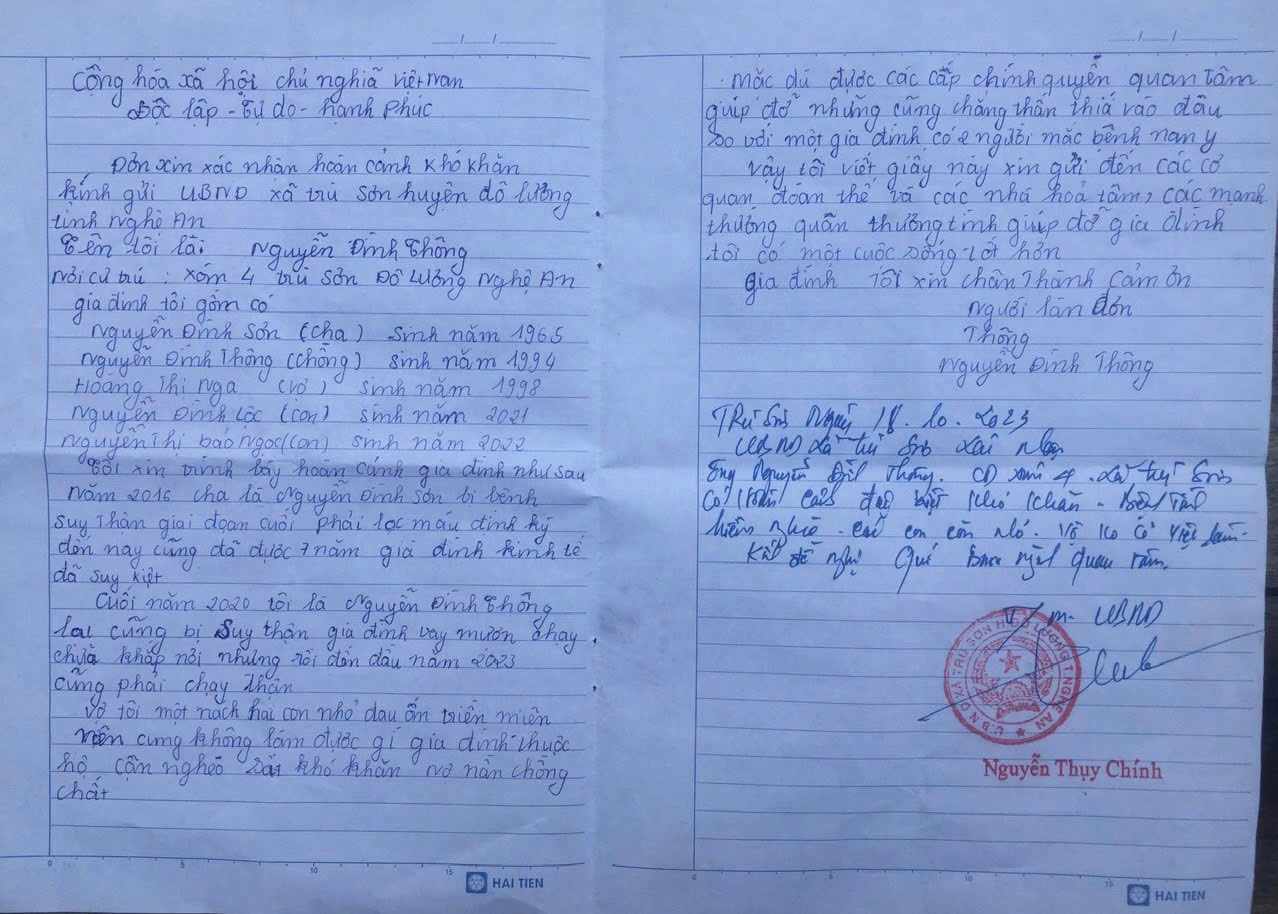 Cộng hóa xã hội chủ nghiã việt nam
Độc lập - Tự do - hạnh phúc
Đơn xin xác nhận hoàn cảnh khó khăn
kính gửi UBND xã trù sơn huyện đô lương
tỉnh nghệ An
Tên tôi là: Nguyễn Đình Thông
nơi cư trú : xóm 4 trù sơn Đô Lương nghệ An
gia đình tôi gồm có
Nguyễn Đình Sơn (cha) sinh năm 1965
Nguyễn Đình Thông (chồng) sinh năm 1994
Hoàng Thị Nga (vợ) sinh năm 1998
Nguyễn Đình Lộc (con) sinh năm 2021
Nguyễn Thị bảo Ngọc (con) sinh năm 2022
Tôi xin trình bày hoàn cảnh gia đình như sau
năm 2016 cha là Nguyễn Đình Sơn bị bệnh
suy thận giai đoạn cuối phải lọc máu định kỳ
đến nay cũng đã được 7 năm gia đình kinh tế
đã suy kiệt
Cuối năm 2020 tôi là Nguyễn Đình Thông
lại cũng bị suy thận gia đình vay mươn chạy
chửa khắp nơi nhưng rồi đến đầu năm 2023
cũng phải chạy thận
vợ tôi một nách hai con nhỏ đau ốm triền miên
nên cung không làm được gì gia đình thuộc
hộ cận nghèo khó khăn nợ nần chồng
chất
mặc dù được các cấp chính quyền quan tâm
giúp đỡ nhưng cũng chẳng thấn thiá vào đâu
so với một gia đình có 2 người mắc bệnh nan y
vậy tôi viết giấy này xin gửi đến các cơ
quan, đoàn thể và các nhà hoả tâm, các mạnh
thường quân thương tình giúp đỡ gia đình
tôi có một cuộc sống tốt hơn
Gia đình Tôi xin chân Thành cảm ơn
người làm đơn
Thông
Nguyễn Đình Thông
Trù Sơn Ngày 18. 10. 2023
UBND xã trù Sơn xác nhận
Ông Nguyễn Đình Thông. xóm 4 xã trù Sơn
Có hoàn cảnh đặc biệt khó khăn -
hiểm nghèo - con còn nhỏ. Vợ ko có việc làm.
Kính đề nghị Quý quan tâm.
T/m. UBND
U.B.N.D XÃ TRÙ SƠN H. ĐÔ LƯƠNG T. NGHỆ AN
Nguyễn Thụy Chính
0 5 10 15
HAI TIEN
0 5 10 15
HAI TIEN